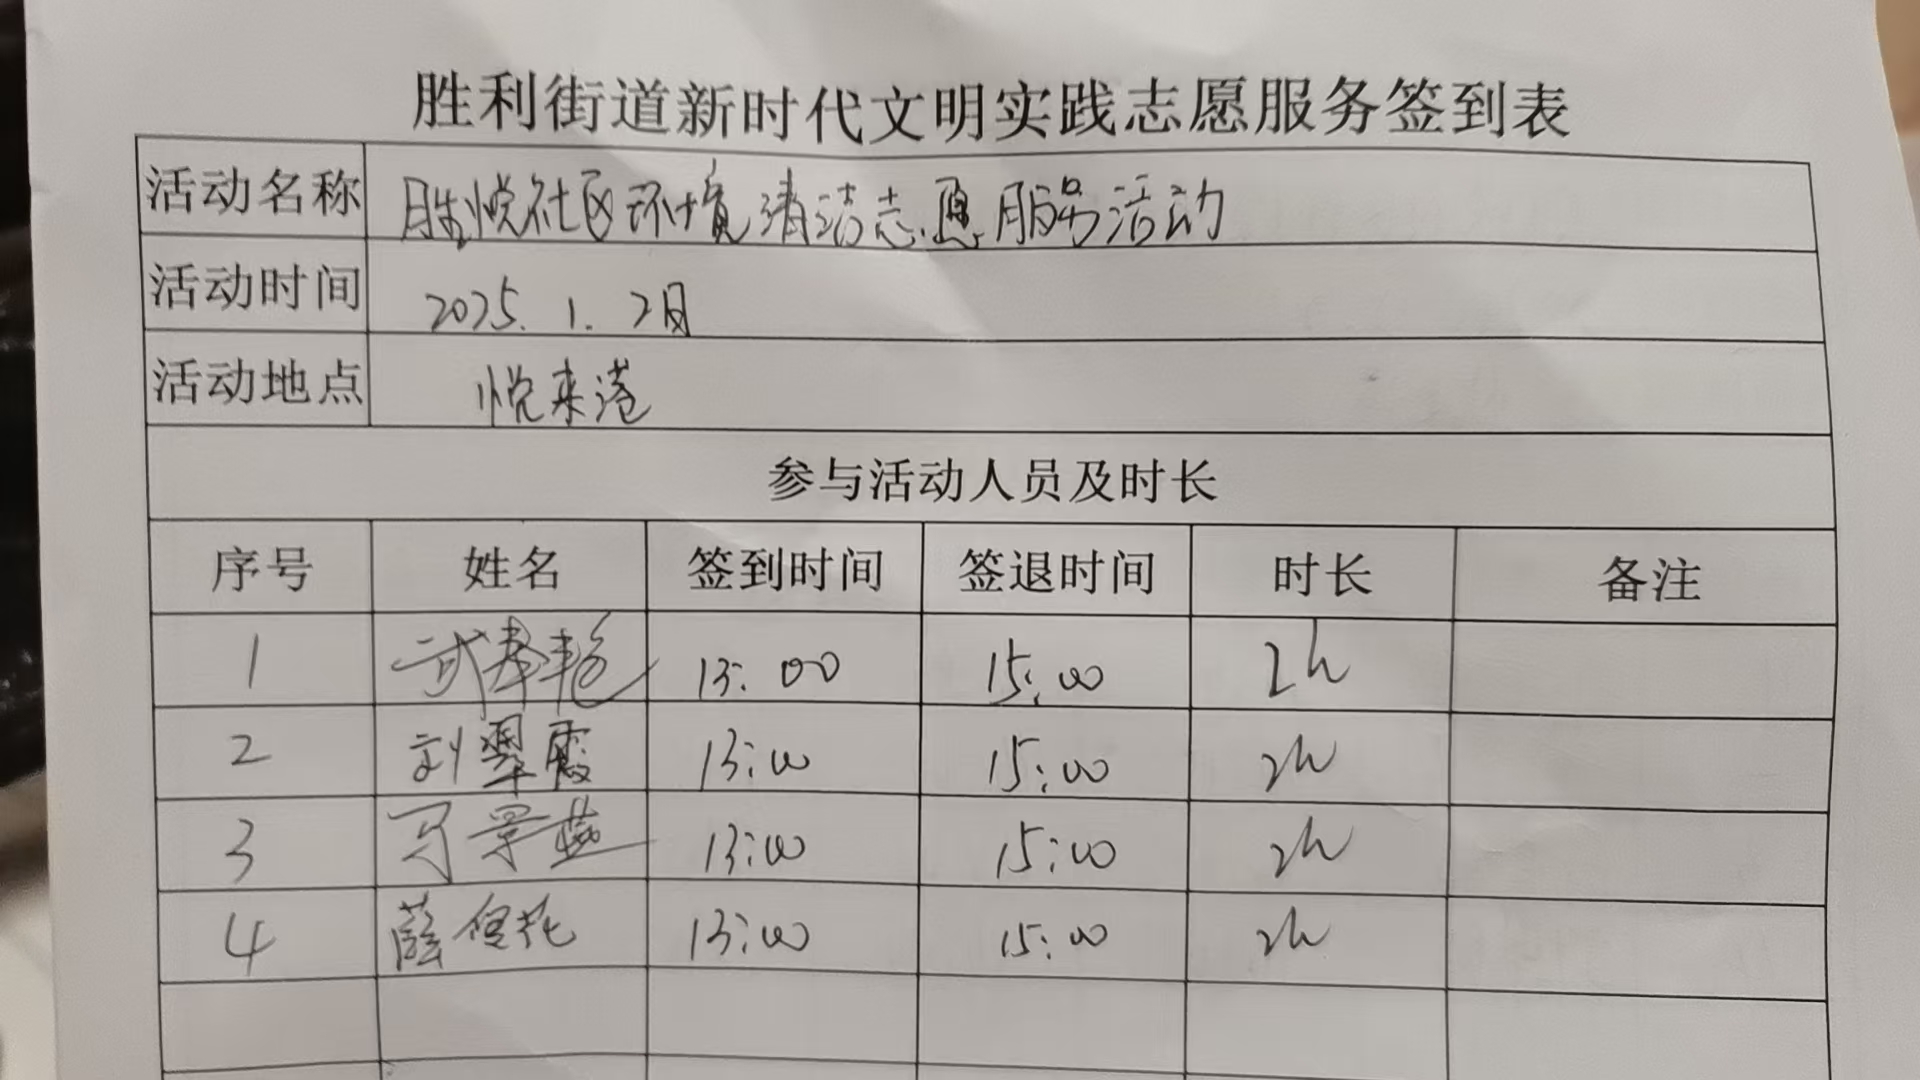 胜利街道新时代文明实践志愿服务签到表
活动名称 胜悦社区环境清洁志愿服务活动
活动时间 2025.1.2日
活动地点 悦来港
参与活动人员及时长
序号 姓名 签到时间 签退时间 时长 备注
1 武春艳 13:00 15:00 2h
2 刘翠霞 13:00 15:00 2h
3 马景 13:00 15:00 2h
4 薛 花 13:00 15:00 2h